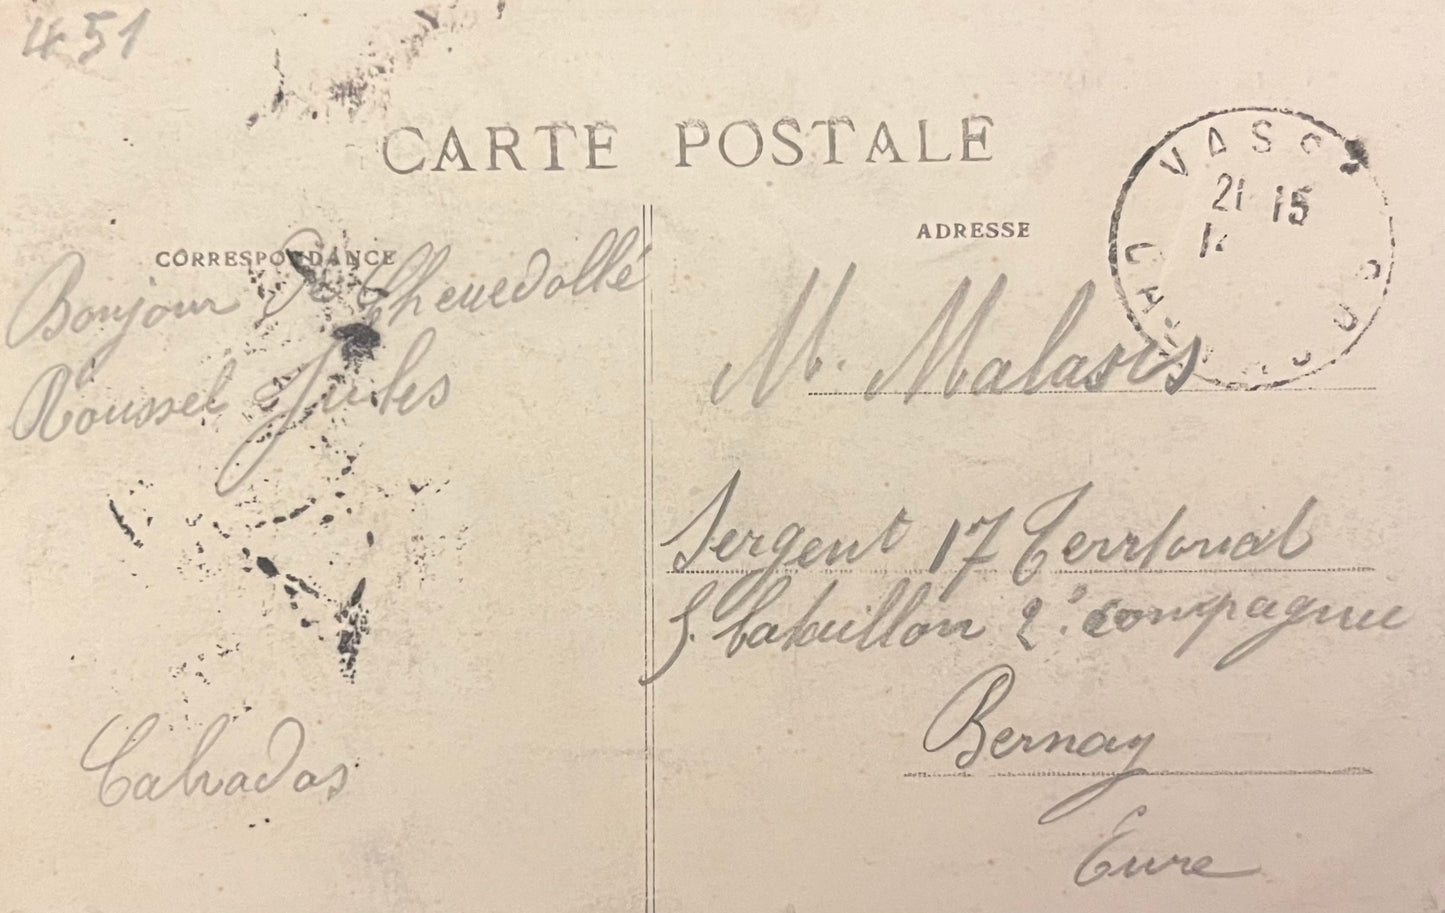 451
CARTE POSTALE
CORRESPONDANCE
Bonjour De Chenedollé
Roussel Jules
Calvados
ADRESSE
M. Malasis
Sergent 17 Territorial
5. bataillon 2e compagnie
Bernay
Eure
21 15